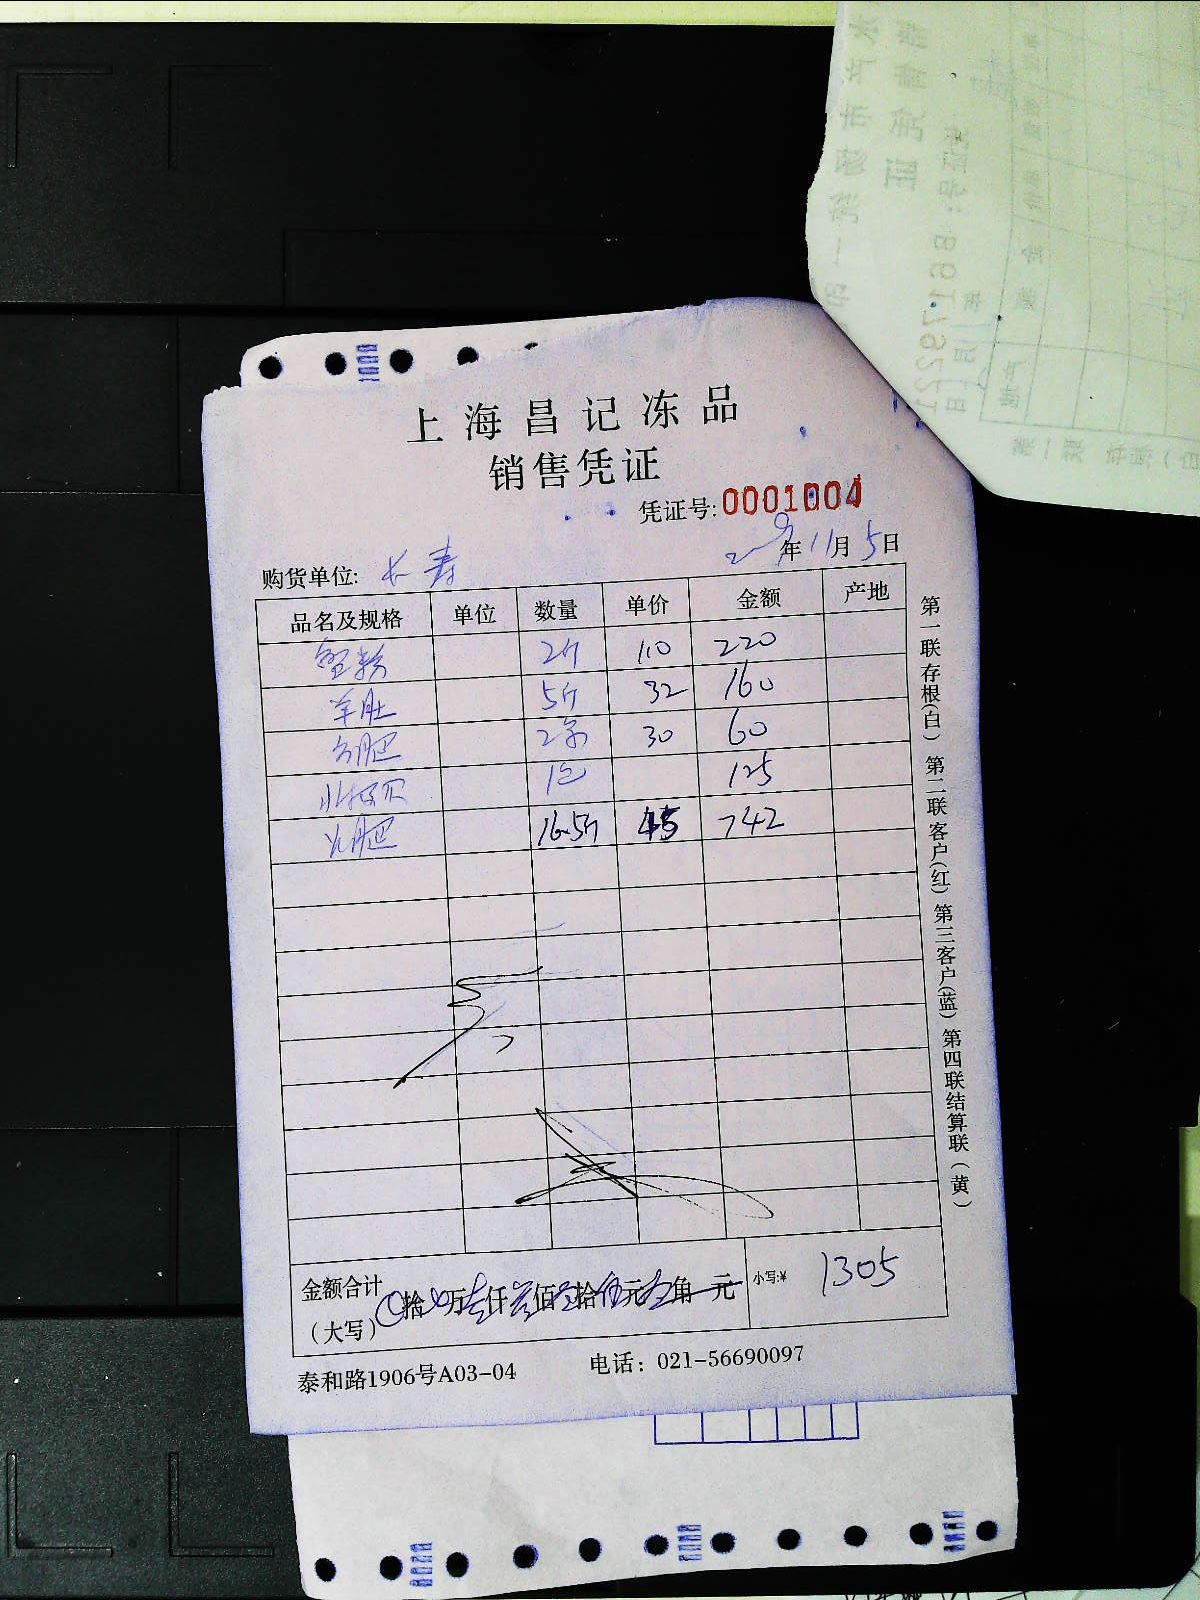 上海昌记冻品
销售凭证
凭证号:0001004
购货单位: 长寿 年11月5日
品名及规格 单位 数量 单价 金额 产地
2斤 110 220
羊肚 5斤 32 160
2条 30 60
1包 125
16.5斤 45 742
金额合计
(大写) 拾 万壹仟叁佰零拾伍元 角 元 小写:¥ 1305
泰和路1906号A03-04 电话：021-56690097
第一联存根(白) 第二联客户(红) 第三客户(蓝) 第四联结算联(黄)